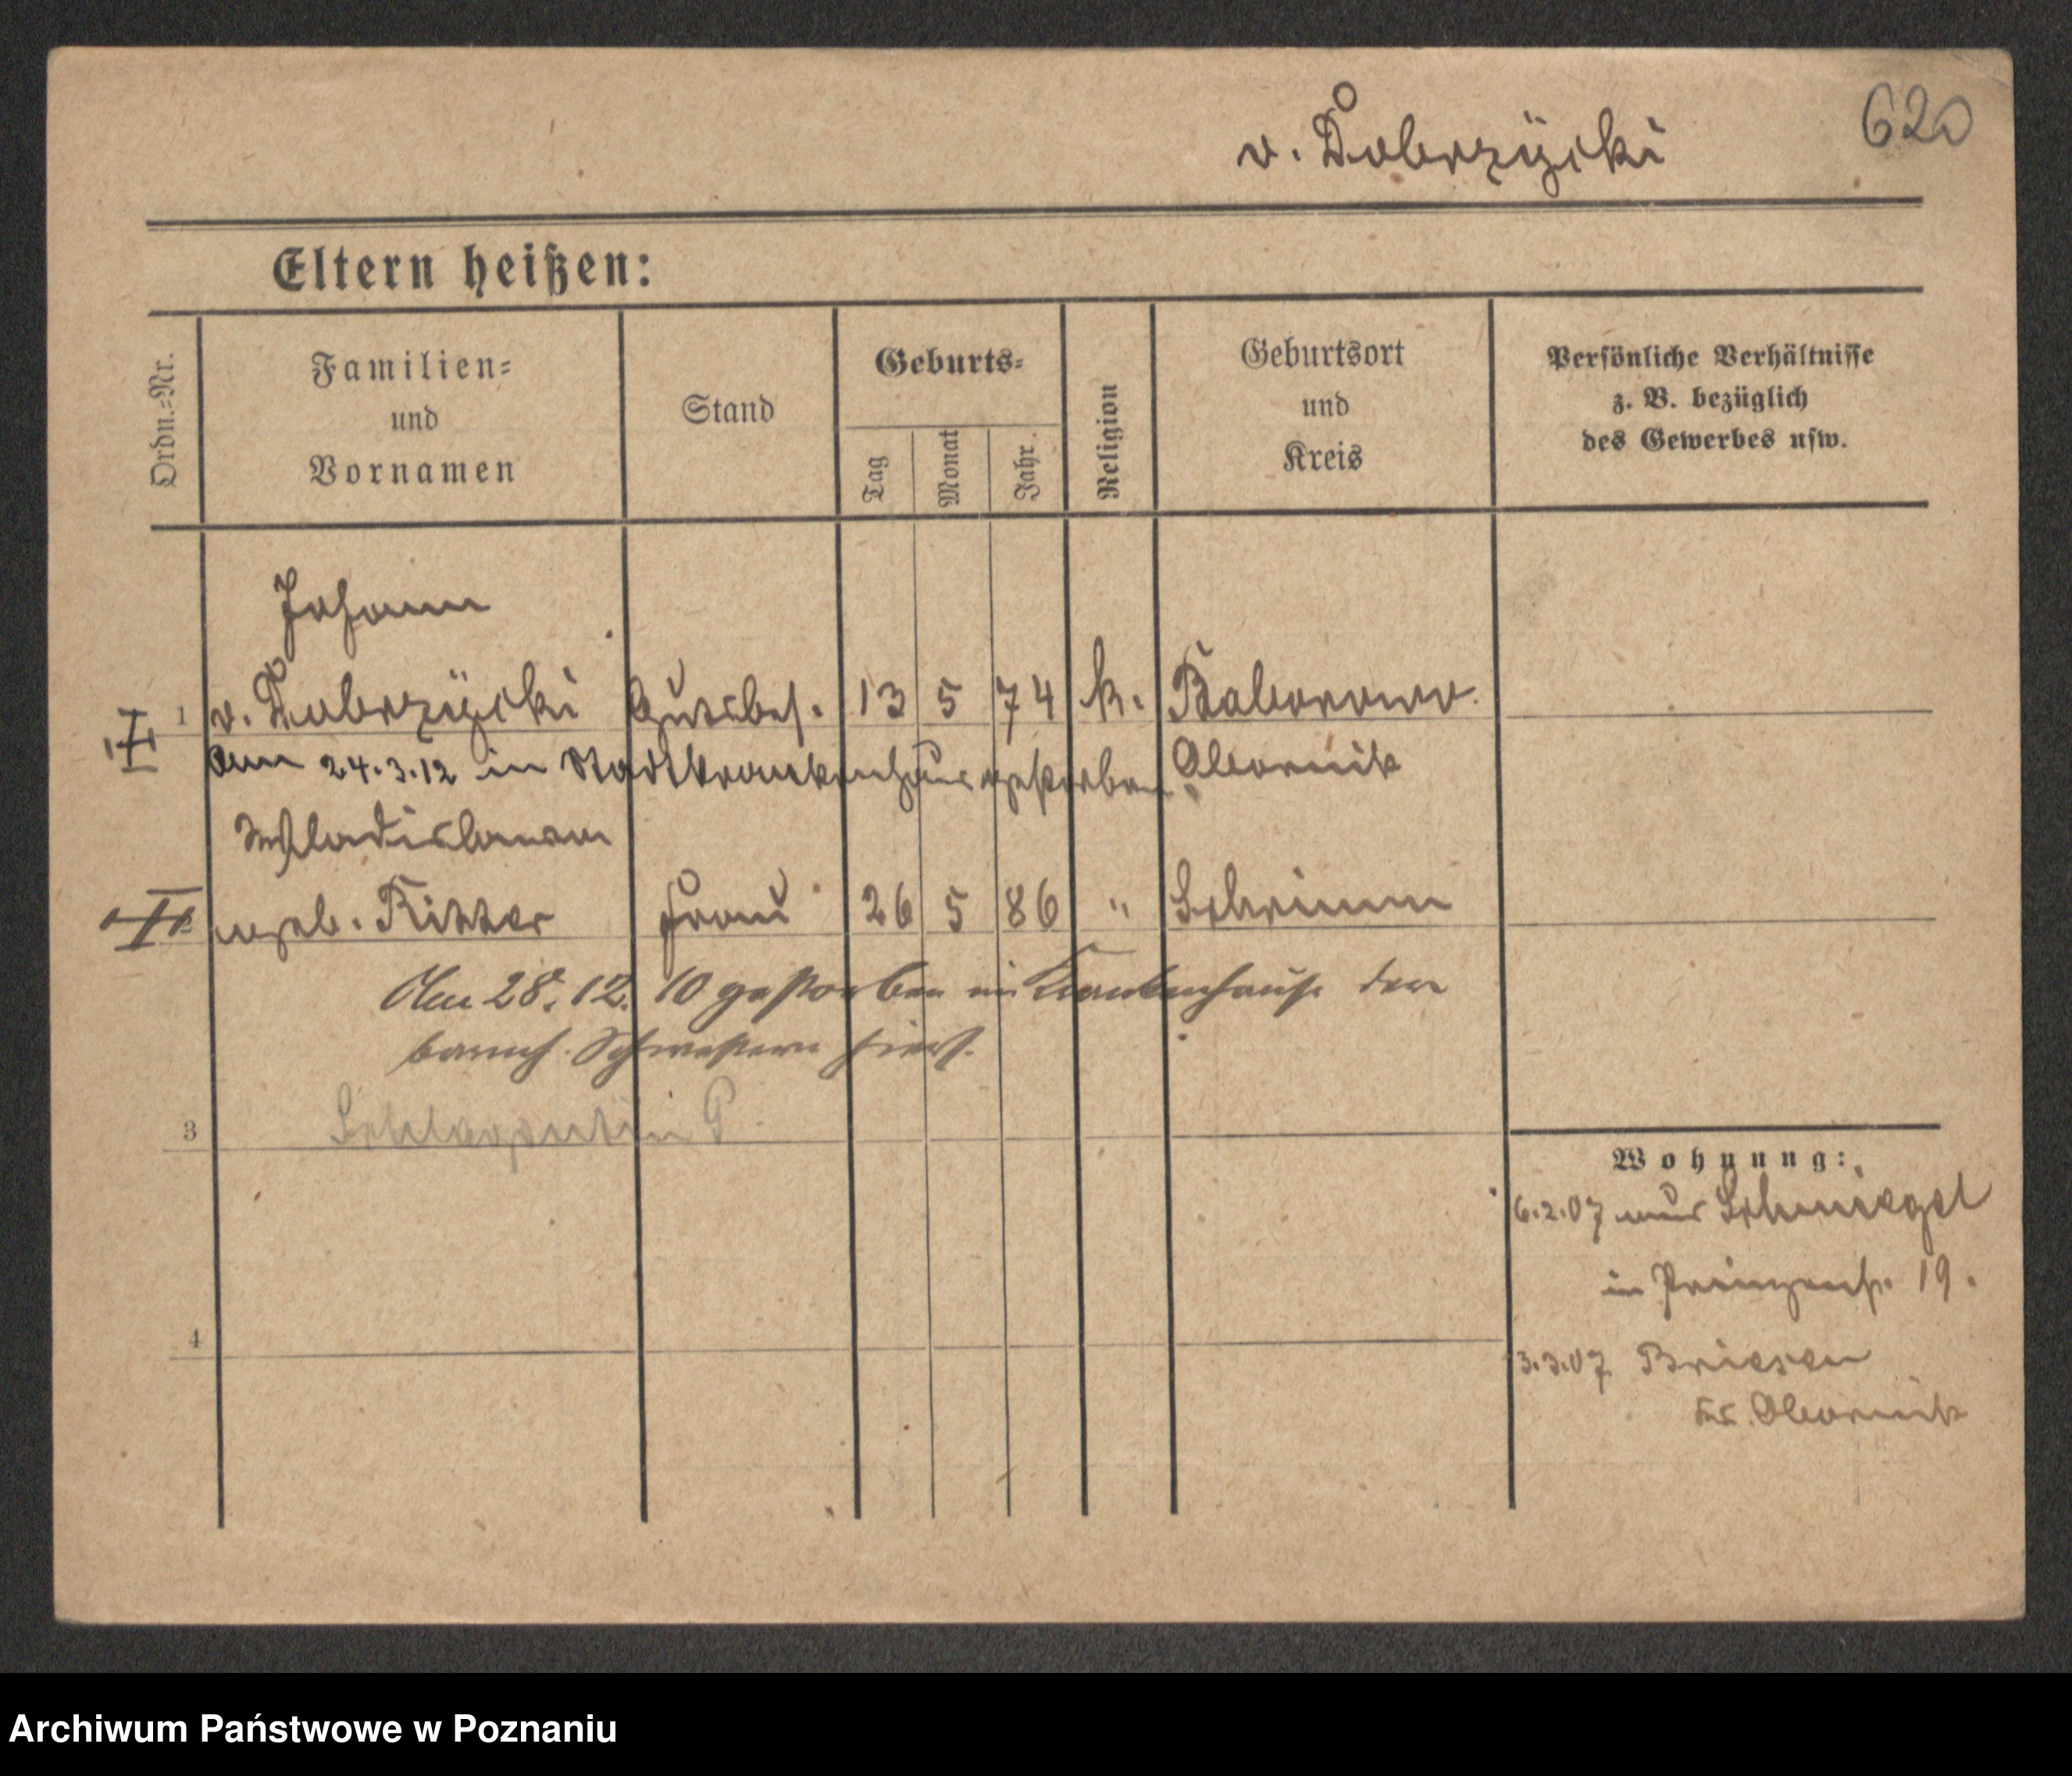 620
v. Dobrzÿcki
Eltern heißen:
Ordn.=Nr.
Familien=
und
Vornamen
Stand
Geburts=
Tag
Monat
Jahr.
Religion
Geburtsort
und
Kreis
Persönliche Verhältnisse
z. B. bezüglich
des Gewerbes usw.
Johann
1 v. Dobrzÿcki Gutsbes. 13 5 74 k. Baborowo
Am 24.3.12 in Stadtkrankenhaus gestorben. Obornik
Wladislawa
geb. Ritter Frau 26 5 86 " Schrimm
Am 28.12.10 gestorben im Krankenhause der
barmh. Schwestern hiers.
3
4
Wohnung:
6.2.07 aus Schmiegel
in Prinzenstr. 19.
3.3.07 Briesen
Kr. Obornik
Archiwum Państwowe w Poznaniu